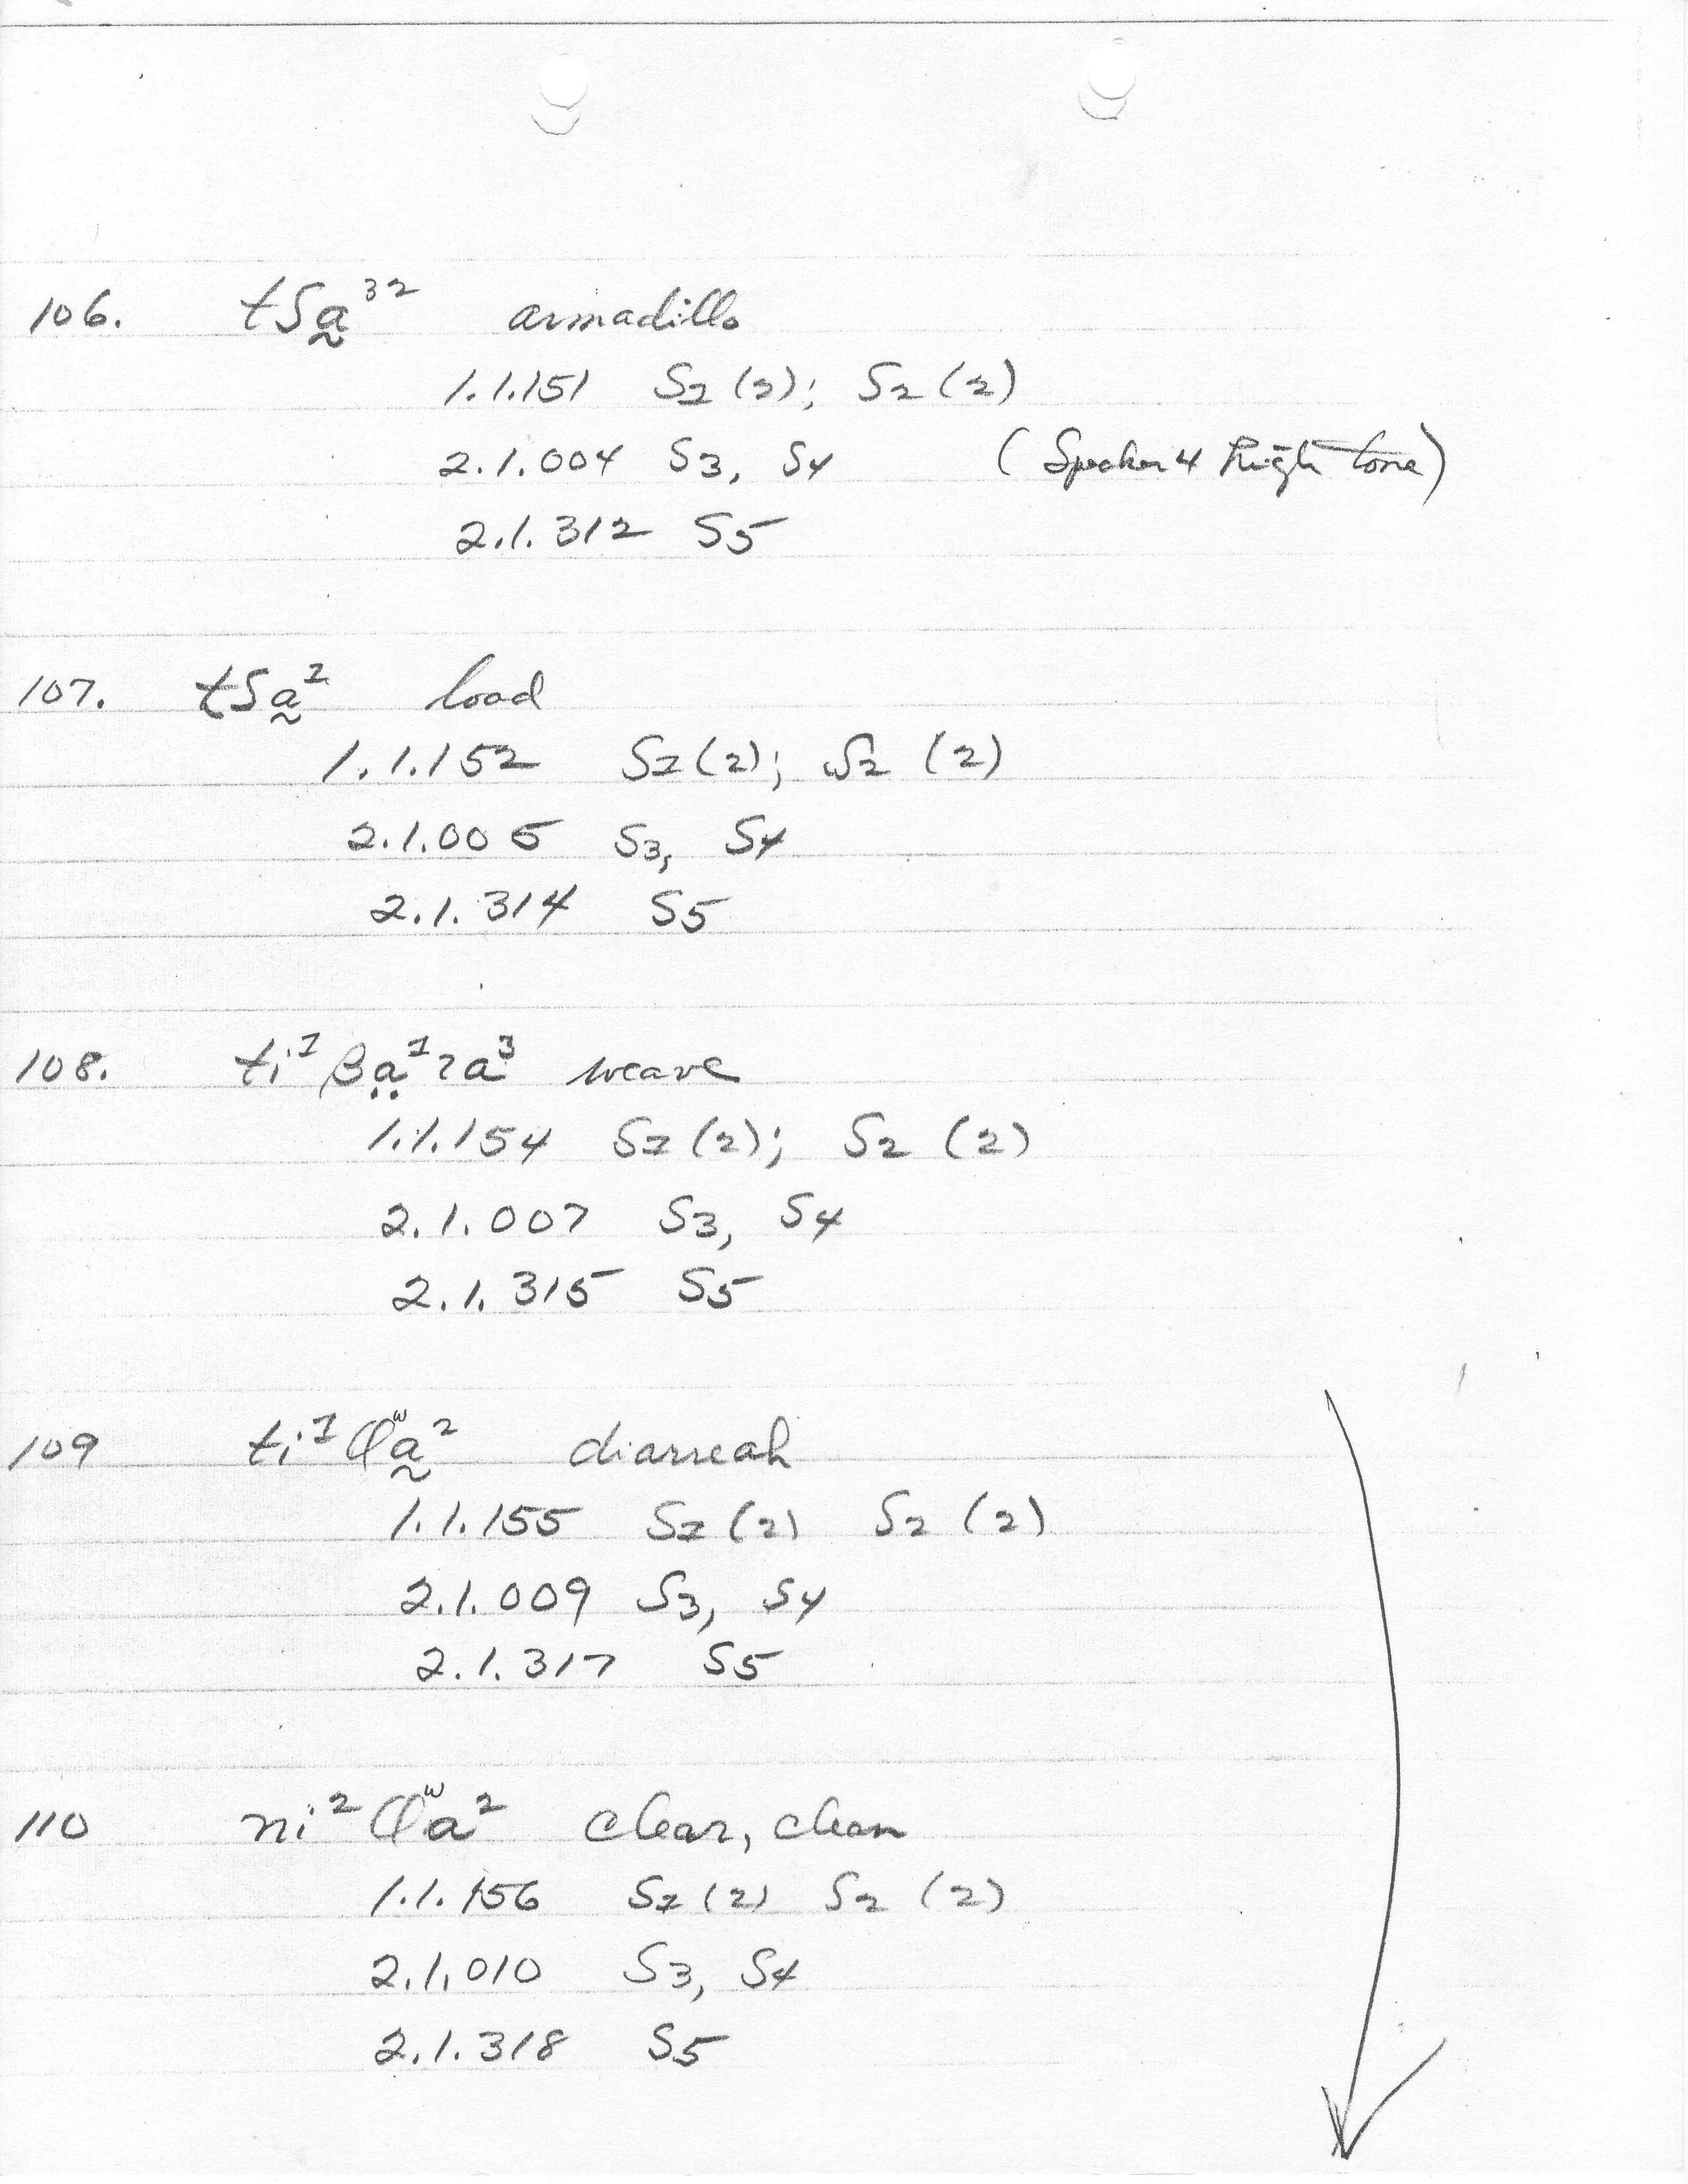 106. tʃa̰³² armadillo
1.1.151 S1 (2); S2 (2)
2.1.004 S3, S4 (Speaker 4 high tone)
2.1.312 S5
107. tʃa̰² load
1.1.152 S1 (2); S2 (2)
2.1.005 S3, S4
2.1.314 S5
108. ti¹βa̤¹ʔa³ weave
1.1.154 S1 (2); S2 (2)
2.1.007 S3, S4
2.1.315 S5
109 ti¹ɸʷa̰² diarreah
1.1.155 S1 (2) S2 (2)
2.1.009 S3, S4
2.1.317 S5
110 ni²ɸʷa² clear, clean
1.1.156 S1 (2) S2 (2)
2.1.010 S3, S4
2.1.318 S5